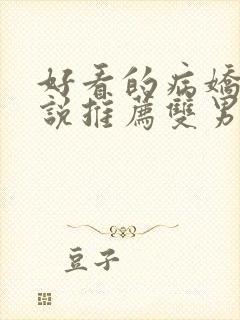 好看的病嬌
說推薦雙男
豆子